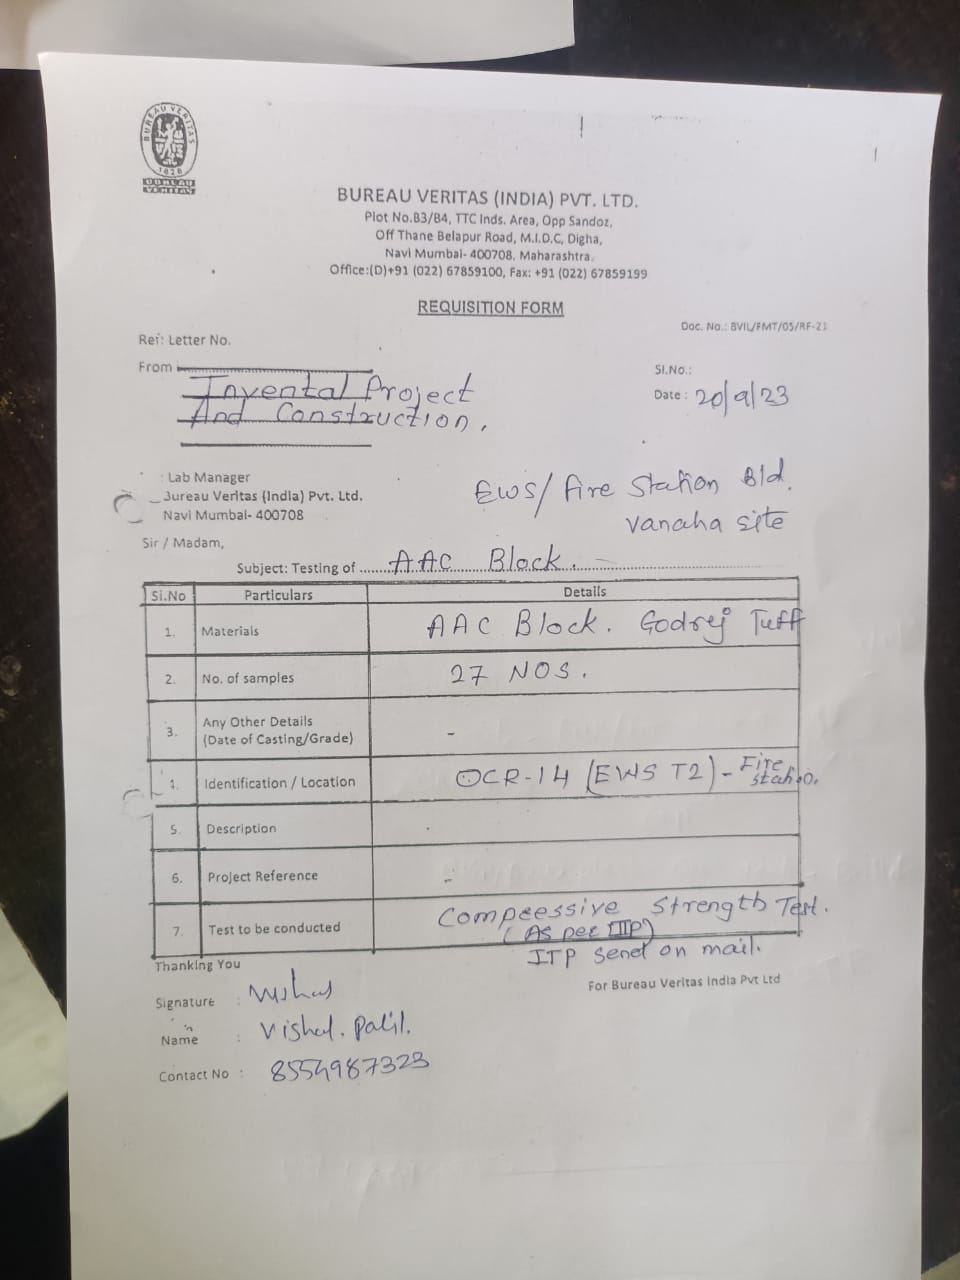 BUREAU VERITAS
1828
BUREAU
VERITAS
BUREAU VERITAS (INDIA) PVT. LTD.
Plot No.B3/B4, TTC Inds. Area, Opp Sandoz,
Off Thane Belapur Road, M.I.D.C, Digha,
Navi Mumbai- 400708, Maharashtra.
Office:(D)+91 (022) 67859100, Fax: +91 (022) 67859199
REQUISITION FORM
Doc. No.: BVIL/FMT/05/RF-21
Ref: Letter No.
From Invental Project
And Construction.
Sl.No.:
Date : 20/9/23
: Lab Manager
Bureau Veritas (India) Pvt. Ltd.
Navi Mumbai- 400708
EWS/ Fire Station Bld.
Vanaha site
Sir / Madam,
Subject: Testing of ........AAC Block.
Si.No Particulars Details
1. Materials AAC Block. Godrej Tuff
2. No. of samples 27 NOS.
3. Any Other Details
(Date of Casting/Grade) -
4. Identification / Location OCR-14 (EWS T2) - Fire
Station.
5. Description
6. Project Reference -
7. Test to be conducted Compressive Strength Test.
(As per ITP)
ITP send on mail.
Thanking You
For Bureau Veritas India Pvt Ltd
Signature : Vishal
Name : Vishal. Patil.
Contact No : 8554987323